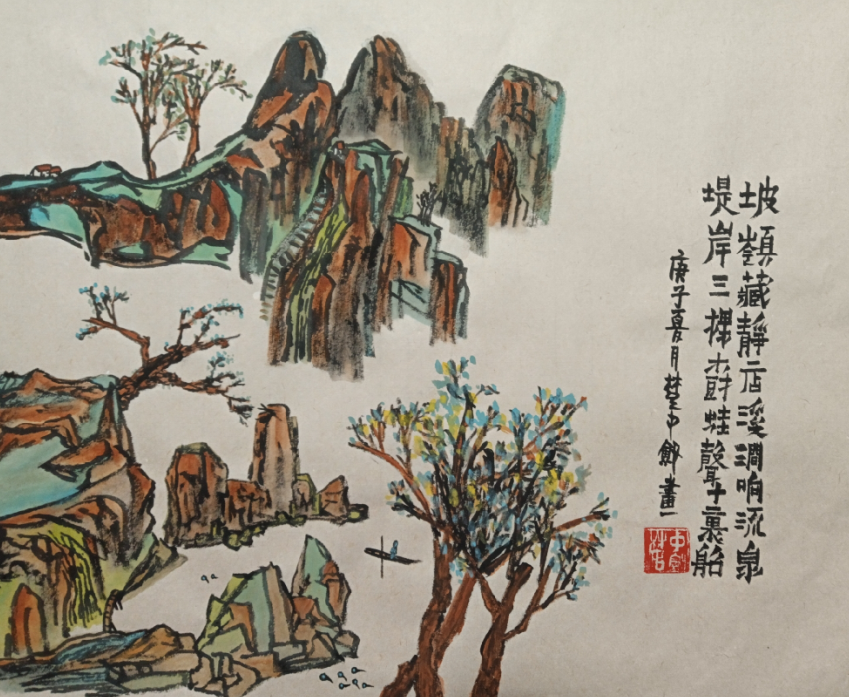 坡嶺藏靜店溪澗响流泉
堤岸三棵樹蛙聲十裏船
庚子夏月楚中畫